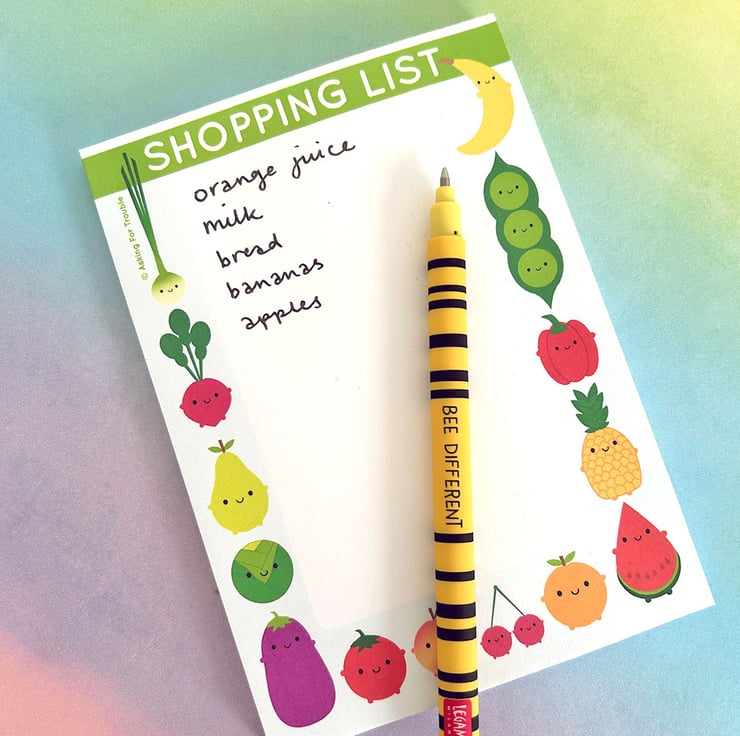 SHOPPING LIST
orange juice
milk
bread
bananas
apples
© Asking For Trouble
BEE DIFFERENT